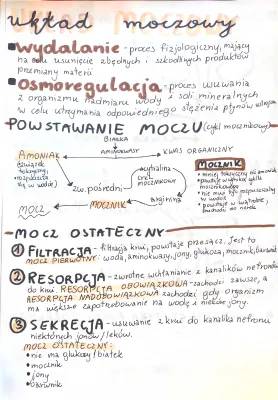 układ moczowy
• wydalanie - proces fizjologiczny, mający
na celu usunięcie zbędnych i szkodliwych produktów
przemiany materii
• osmoregulacja - proces usuwania
z organizmu nadmiaru wody i soli mineralnych
w celu utrzymania odpowiedniego stężenia płynów
POWSTAWANIE MOCZU (cykl mocznikowy)
BIAŁKA
AMINOKWASY
KWAS ORGANICZNY
AMONIAK
(związek
toksyczny,
w wodzie)
cytrulina
CYKL
MOCZNIKOWY
arginina
zw. pośredni
MOCZNIK
MOCZ
MOCZNIK
• mniej toksyczny niż amoniak
• powstaje w wątrobie
MOCZ OSTATECZNY
1 FILTRACJA - filtracja krwi, powstaje przesącz. Jest to
MOCZ PIERWOTNY: woda, aminokwasy, jony, glukoza, mocznik, barwnik
2 RESORPCJA - zwrotne wchłanianie z kanalików nefronu
do krwi. RESORPCJA OBOWIĄZKOWA - zachodzi zawsze, a
RESORPCJA NADOBOWIĄZKOWA zachodzi gdy organizm
ma większe zapotrzebowanie na wodę i niektóre jony.
3 SEKRECJA - usuwanie z krwi do kanalika nefronu
niektórych jonów/leków.
MOCZ OSTATECZNY:
• nie ma glukozy/białek
• mocznik
• jony
• barwnik